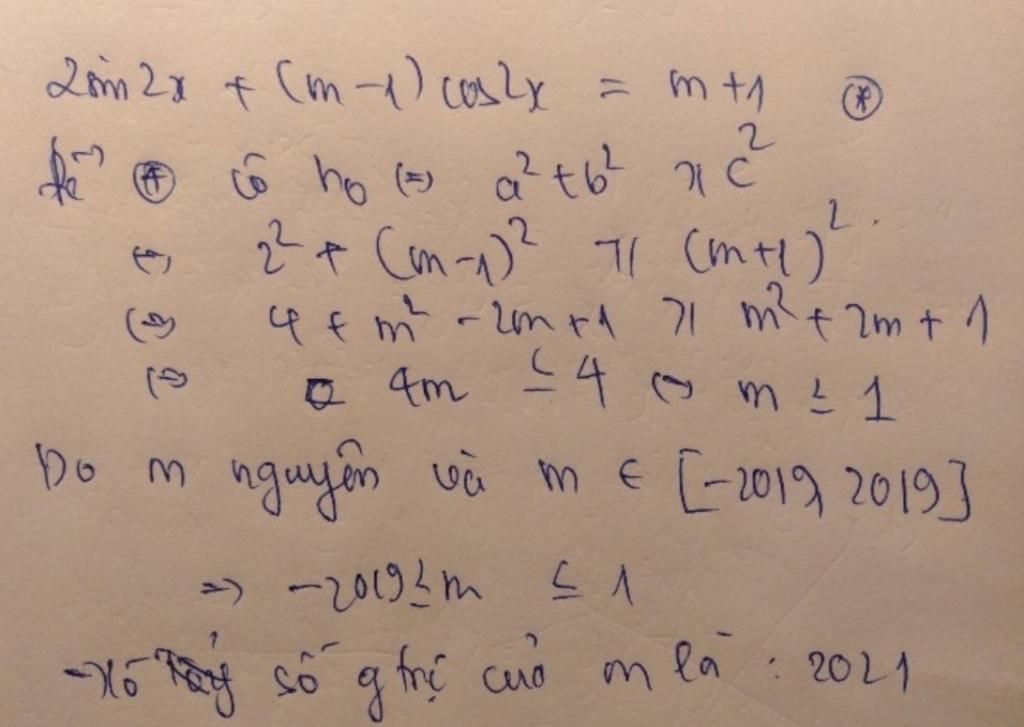 2sin2x + (m-1)cos2x = m+1 (*)
Để (*) có no ⇔ a² + b² ≥ c²
⇔ 2² + (m-1)² ≥ (m+1)²
⇔ 4 + m² - 2m + 1 ≥ m² + 2m + 1
⇔ 4m ≤ 4 ⇔ m ≤ 1
Do m nguyên và m ∈ [-2019, 2019]
⇒ -2019 ≤ m ≤ 1
số g trị của m là : 2021